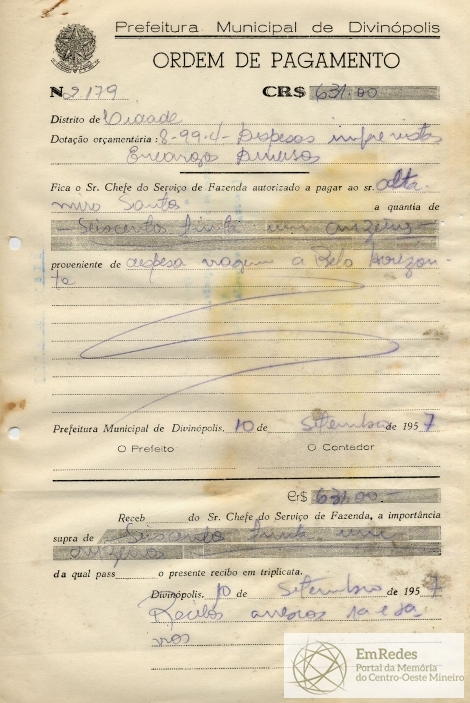 Prefeitura Municipal de Divinópolis
ORDEM DE PAGAMENTO
N 2179 CR$ 631.00
Distrito de Cidade
Dotação orçamentária: 8-99-4- Despesas imprevistas
Encargos Diversos
Fica o Sr. Chefe do Serviço de Fazenda autorizado a pagar ao sr. Alta-
miro Santos a quantia de
- Seiscentos trinta um cruzeiros -
proveniente de despesa viagem a Belo Horizon-
te
Prefeitura Municipal de Divinópolis, 10 de Setembro de 1957
O Prefeito O Contador
Cr$ 631.00 -
Receb do Sr. Chefe do Serviço de Fazenda, a importância
supra de Seiscentos trinta um
cruzeiros
da qual pass o presente recibo em triplicata.
Divinópolis, 10 de Setembro de 1957
Recibos
EmRedes
Portal da Memória
do Centro-Oeste Mineiro